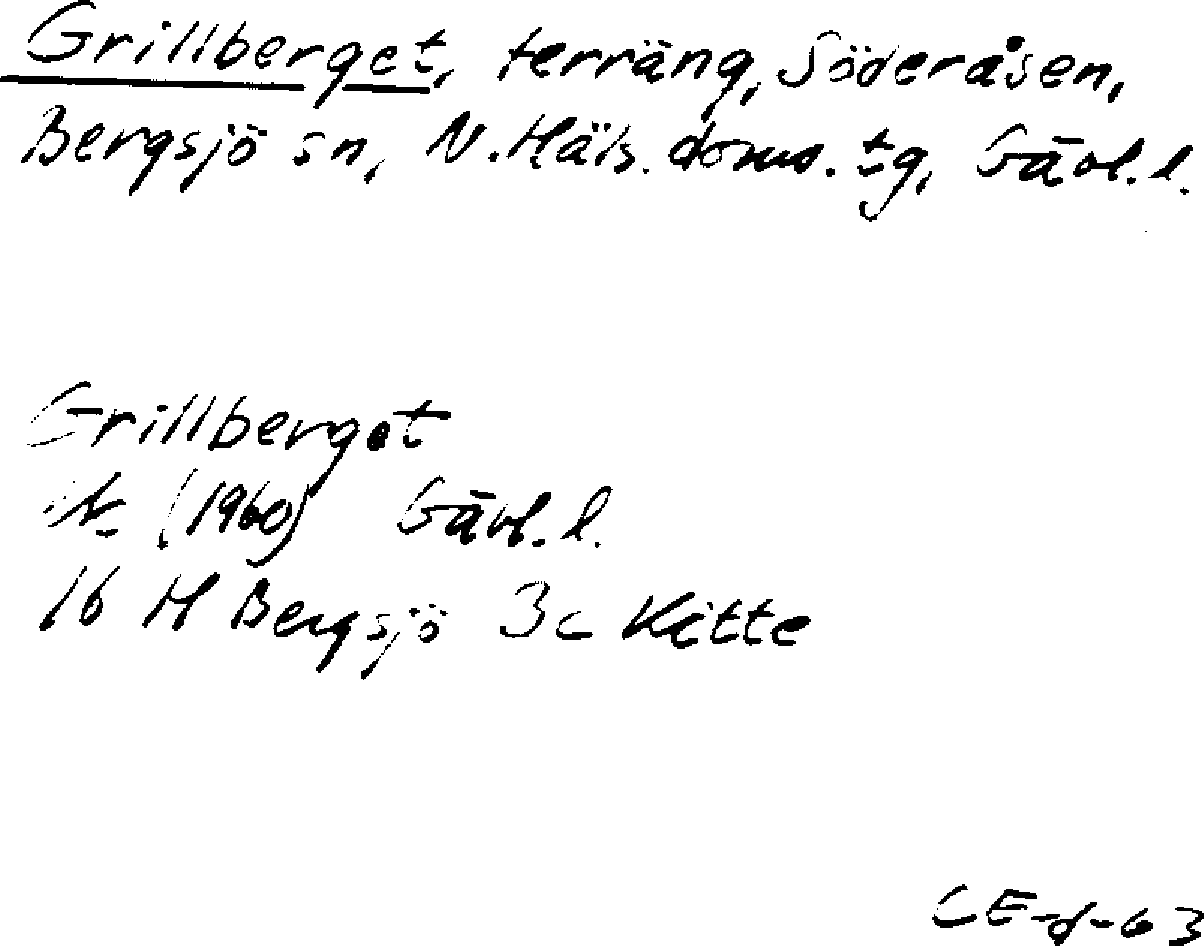 Grillberget, terräng, Söderåsen,
Bergsjö sn, N. Häls. doms. tg, Gävl. l.
Grillberget
(1960) Gävl. l.
16 H Bergsjö 3c Kitte
CE-d-63